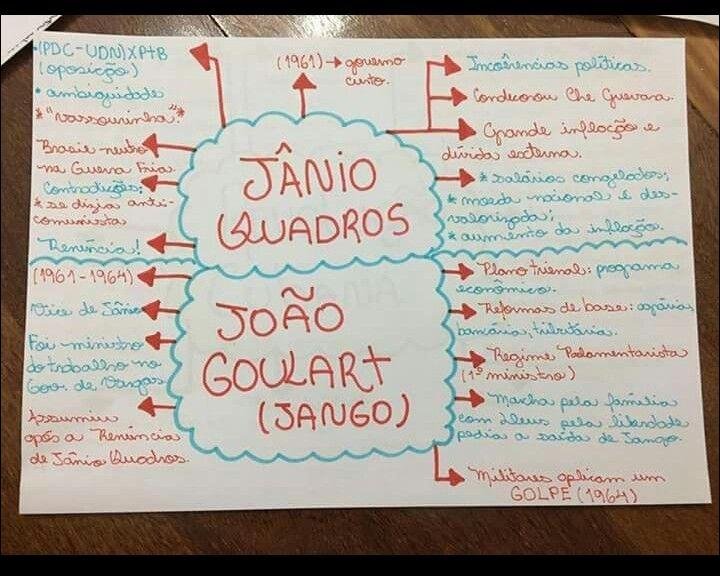 •(PDC-UDN)XPTB
(oposição)
* ambiguidade
* "vassourinha".*
Brasil neutro
na Guerra Fria.
Contradições;
* se dizia anti-
comunista
Renúncia!
(1961) → governo
curto.
JÂNIO
QUADROS
Incoêrencias políticas.
Condecorou Che Guevara.
Grande inflação e
dívida externa.
* salários congelados;
* moeda nacional é des-
valorizada;
* aumento da inflação.
(1961-1964)
Vice de Jânio
Foi ministro
do trabalho no
Gov. de Vargas
Assumiu
após a Renúncia
de Jânio Quadros.
JOÃO
GOULART
(JANGO)
Plano trienal: programa
econômico.
Reformas de base: agrária,
bancária, tributária.
Regime Parlamentarista
(1º ministro)
Marcha pela família
com Deus pela liberdade
pedia a saída de Jango.
Militares aplicam um
GOLPE (1964)